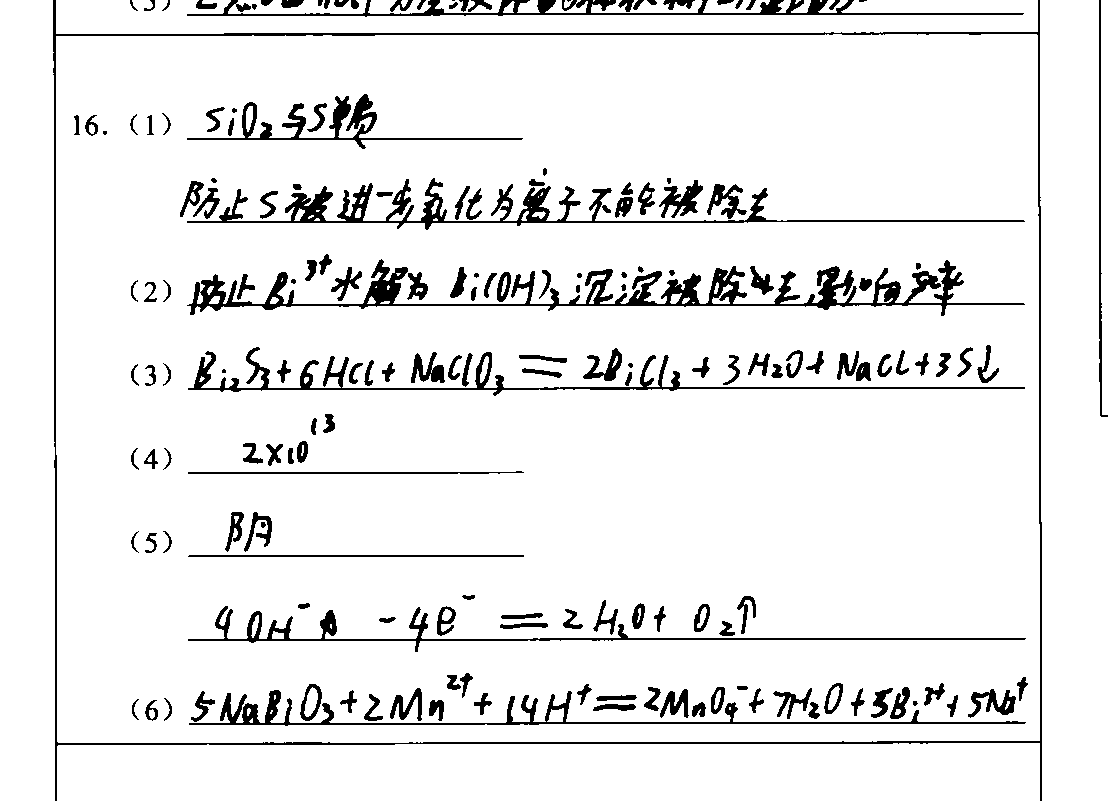 16.（1） SiO₂与S单质
防止S被进一步氧化为离子不能被除去
（2） 防止Bi³⁺水解为Bi(OH)₃沉淀被除去,影响产率
（3） Bi₂S₃+6HCl+NaClO₃=2BiCl₃+3H₂O+NaCl+3S↓
（4） 2×10¹³
（5） 阴
4OH⁻ -4e⁻=2H₂O+O₂↑
（6） 5NaBiO₃+2Mn²⁺+14H⁺=2MnO₄⁻+7H₂O+5Bi³⁺+5Na⁺